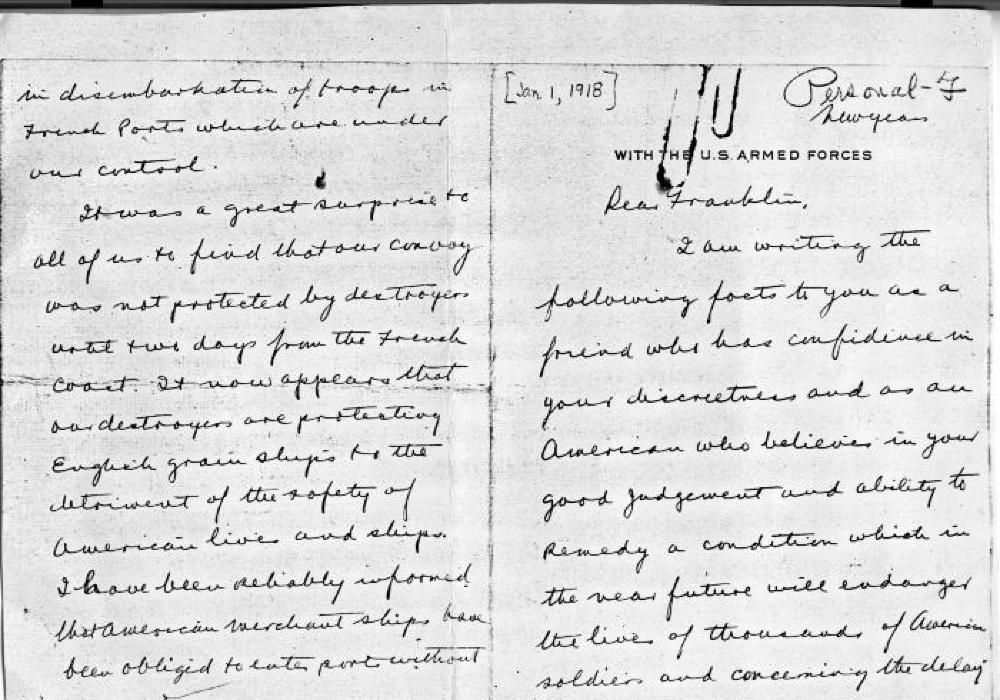 [Jan. 1, 1918]
Personal - F
Newyears
WITH THE U.S. ARMED FORCES
Dear Franklin,
I am writing the
following facts to you as a
friend who has confidence in
your discreetness and as an
American who believes in your
good judgement and ability to
remedy a condition which in
the near future will endanger
the lives of thousands of American
soldiers and concerning the delay
in disembarkation of troops in
French Ports which are under
our control.
It was a great surprise to
all of us to find that our convoy
was not protected by destroyers
until two days from the French
coast. It now appears that
our destroyers are protecting
English grain ships to the
detriment of the safety of
American lives and ships.
I have been reliably informed
that American merchant ships have
been obligid to enter ports without